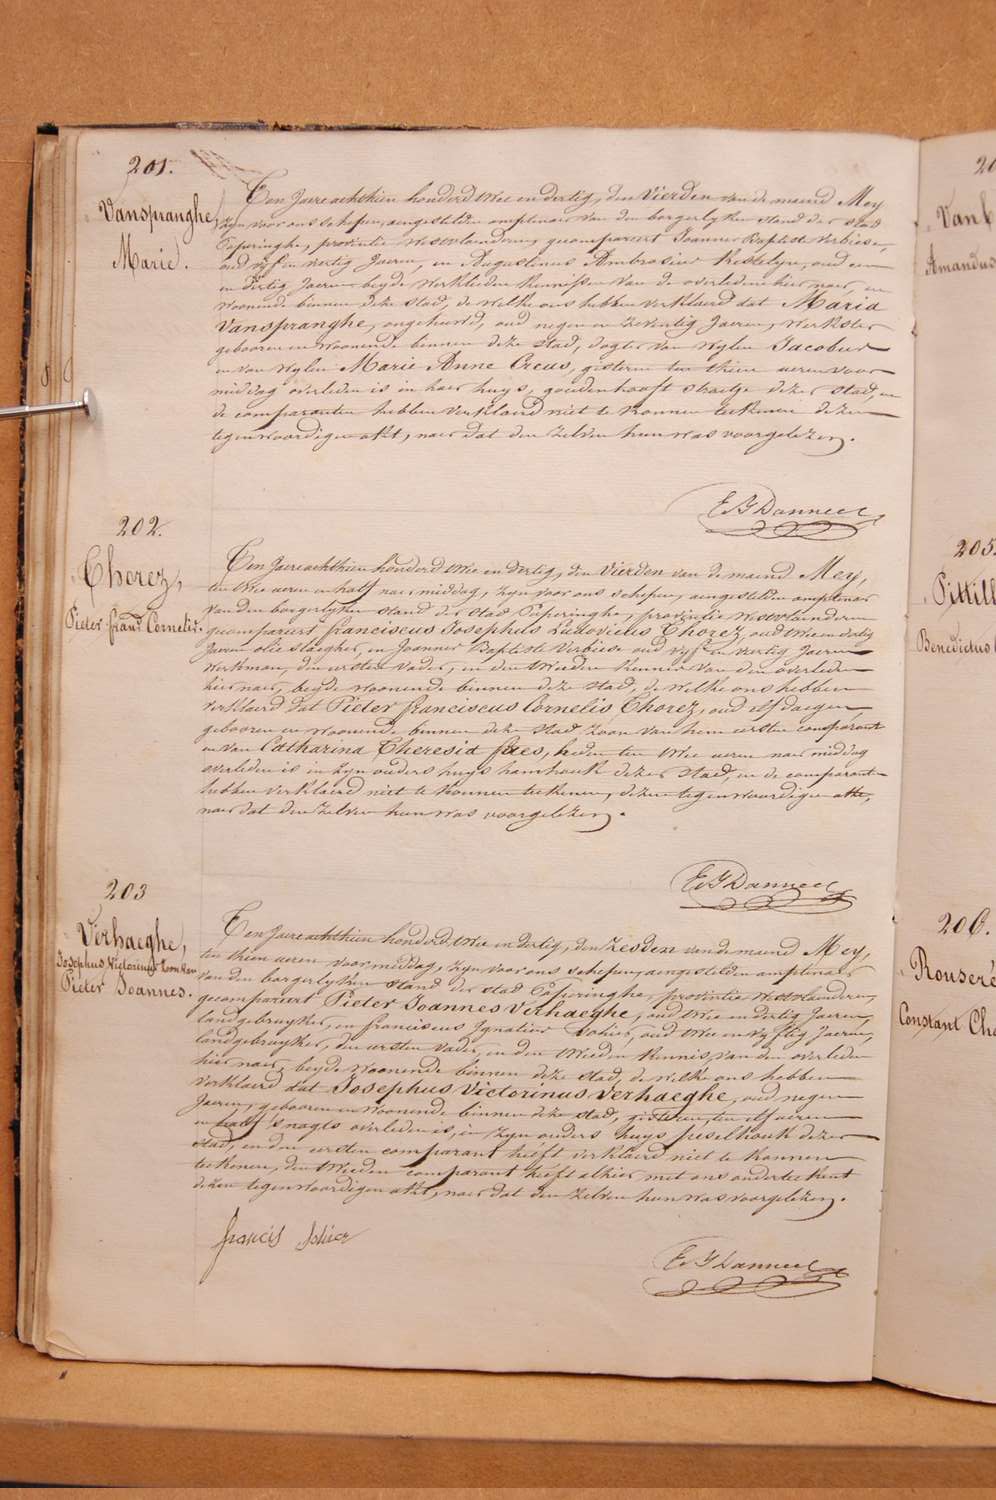 201.
Vanspranghe,
Marie.
Ten Jaere achthien honderd twee en dertig, den Vierden van de maend Mey
zyn voor ons schepen, aengestelden amptenaer van den borgerlyken stand der stad
Poperinghe, provintie Westvlaenderen, gecompareert Joannes Baptiste Verbiese,
oud vyf en veertig Jaeren, en Augustinus Ambrosius Kestelyn, oud een
en dertig Jaeren beyde werklieden kennissen van de overledene hier naer, en
woonende binnen deze stad, de welke ons hebben verklaerd dat Maria
Vanspranghe, ongehuwd, oud negen en zeventig Jaeren, werkster
gebooren en woonende binnen deze stad, dogter van wylen Jacobus
en van wylen Marie Anne Creus, gisteren ten thien ueren voor
middag overleden is in haer huys, goudenhooft straetje dezer stad, en
de comparanten hebben verklaerd niet te konnen teekenen dezen
tegenwoordigen akt, naer dat den zelven hun was voorgelezen.
E J Danneel
202.
Chorez,
Pieter fran.s Cornelis.
Ten Jaere achthien honderd twee en dertig, den Vierden van de maend Mey,
ten twee ueren en half naer middag, zyn voor ons schepen, aengestelden amptenaer
van den borgerlyken stand der stad Poperinghe, provintie Westvlaenderen
gecompareert franciscus Josephus Ludovicus Chorez, oud twee en dertig
Jaeren olie slaegher, en Joannes Baptiste Verbiese oud vyf en veertig Jaeren
werkman, den eersten vader, en den tweeden kennis van den overleden
hier naer, beyde woonende binnen deze stad, de welke ons hebben
verklaerd dat Pieter franciscus Cornelis Chorez, oud elf daegen,
gebooren en woonende binnen deze stad, zoon van hem eersten comparant
en van Catharina Theresia faes, heden ten twee ueren naer middag
overleden is in zyn ouders huys hamhouk dezer stad, en de comparanten
hebben verklaerd niet te konnen teekenen, dezen tegenwoordigen akte,
naer dat den zelven hun was voorgelezen.
E J Danneel
203
Verhaeghe,
Josephus Victorinus zoon van
Pieter Joannes.
Ten Jaere achthien honderd twee en dertig, den Zesden van de maend Mey,
ten thien ueren voor middag, zyn voor ons schepen, aengestelden amptenaer
van den borgerlyken stand der stad Poperinghe, provintie Westvlaenderen,
gecompareert Pieter Joannes Verhaeghe, oud twee en dertig Jaeren,
landgebruyker, en franciscus Ignatius Sohier, oud twee en vyftig Jaeren,
landgebruyker, den eersten vader, en den tweeden kennis van den overleden
hier naer, beyde woonende binnen deze stad, de welke ons hebben
verklaerd dat Josephus Victorinus Verhaeghe, oud negen
Jaeren, gebooren en woonende binnen deze stad, gisteren, ten elf ueren
en half s'nagts overleden is, in zyn ouders huys peselhouk dezer
stad, en den eersten comparant heeft verklaerd niet te konnen
teekenen, den tweeden comparant heeft alhier met ons onderteekent
dezen tegenwoordigen akt, naer dat den zelven hun was voorgelezen.
francis Sohier
E J Danneel
Amandus
205.
206.
Rouseré
Constant Cha